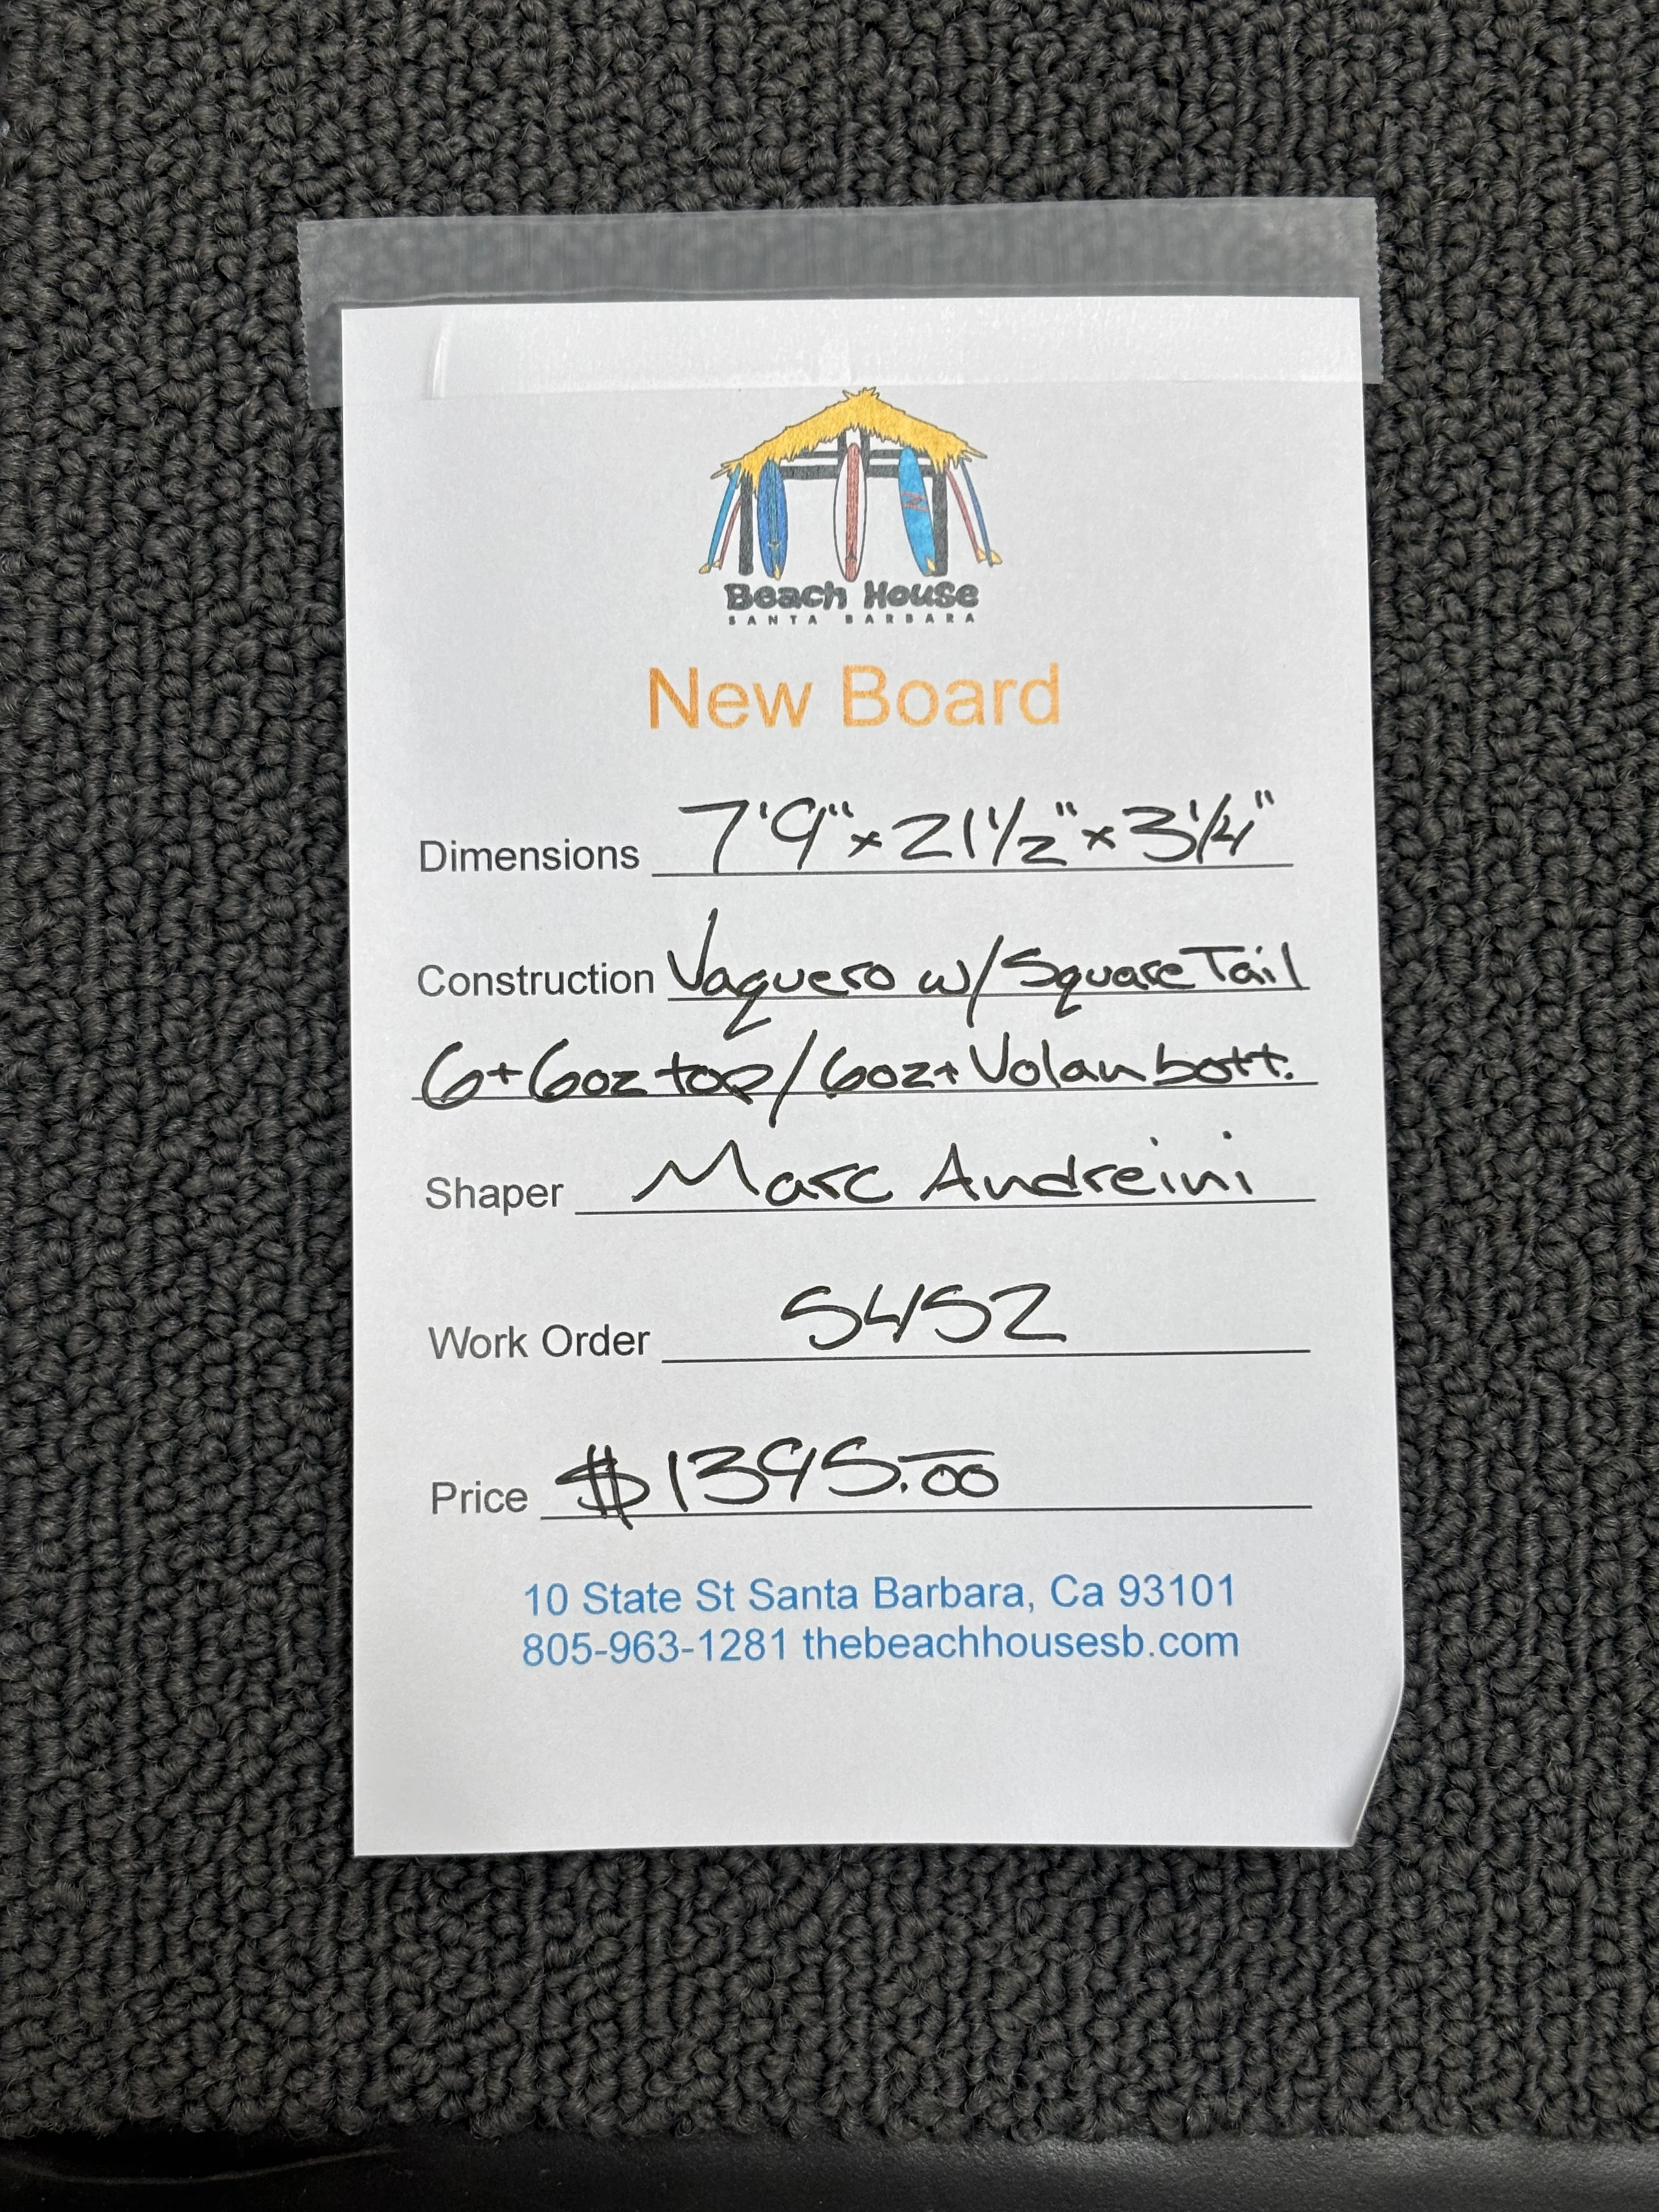 Beach House
SANTA BARBARA
New Board
Dimensions 7'9" x 21 1/2" x 3 1/4"
Construction Vaquero w/ Square Tail
6+6oz top / 6oz+Volan bott.
Shaper Marc Andreini
Work Order 5452
Price $1395.00
10 State St Santa Barbara, Ca 93101
805-963-1281 thebeachhousesb.com